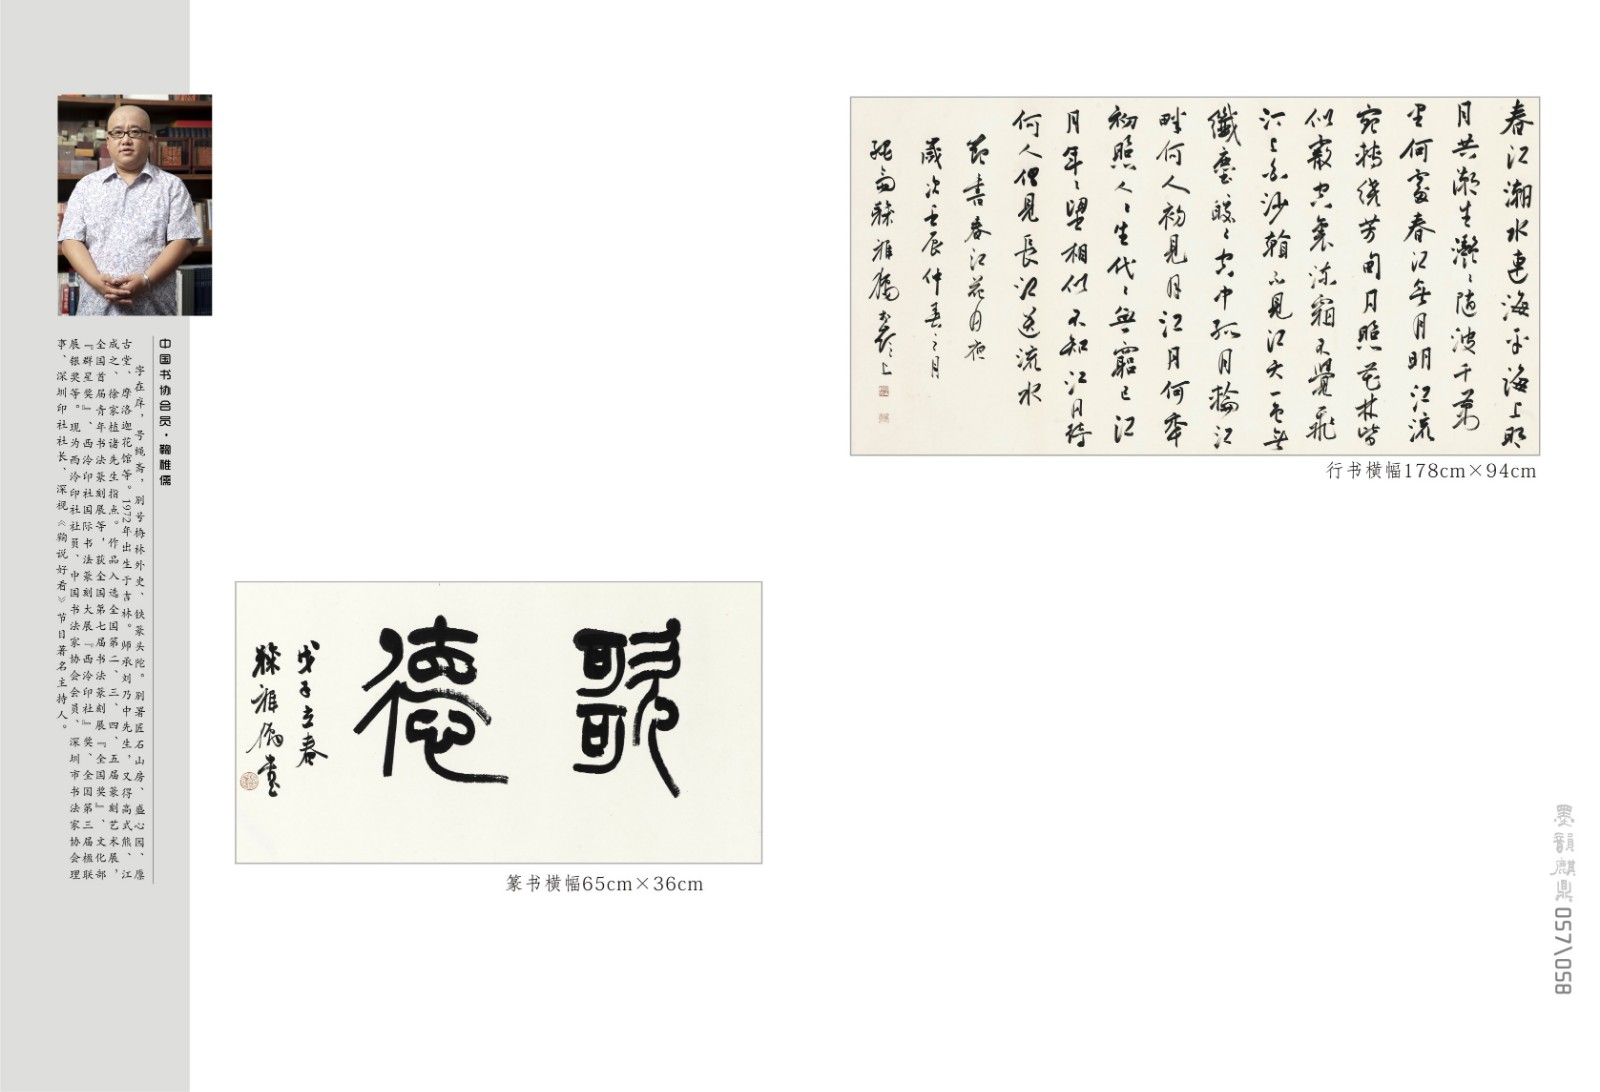 中国书协会员·鞠稚儒
字在庠，号绳斋，别号梅林外史、铁篆头陀。别署匠石山房、盛心园、廛
古堂、摩洛迦花馆等。1972年出生于吉林。师承刘乃中先生，又得高式熊、江
成之、徐家植诸先生指点。作品入选全国第二、三、四、五届篆刻艺术展，
全国首届青年书法篆刻展等，获全国第七届书法篆刻展『全国奖』、文化部
『群星奖』、西泠印社国际书法篆刻大展『西泠印社』奖、全国第三届楹联
展银奖等。现为西泠印社社员、中国书法家协会会员、深圳市书法家协会理
事、深圳印社社长、深视《鞠说好看》节目著名主持人。
春江潮水連海平海上明
月共潮生灩〻隨波千萬
里何處春江無月明江流
宛轉繞芳甸月照花林皆
似霰空裏流霜不覺飛
汀上白沙看不見江天一色無
纖塵皎〻空中孤月輪江
畔何人初見月江月何年
初照人〻生代〻無窮已江
月年〻望相似不知江月待
何人但見長江送流水
節書春江花月夜
歲次壬辰仲春之月
稚儒
行书横幅178cm×94cm
歌德
戊子立春
鞠稚儒書
篆书横幅65cm×36cm
墨韻麒鼎 057\058